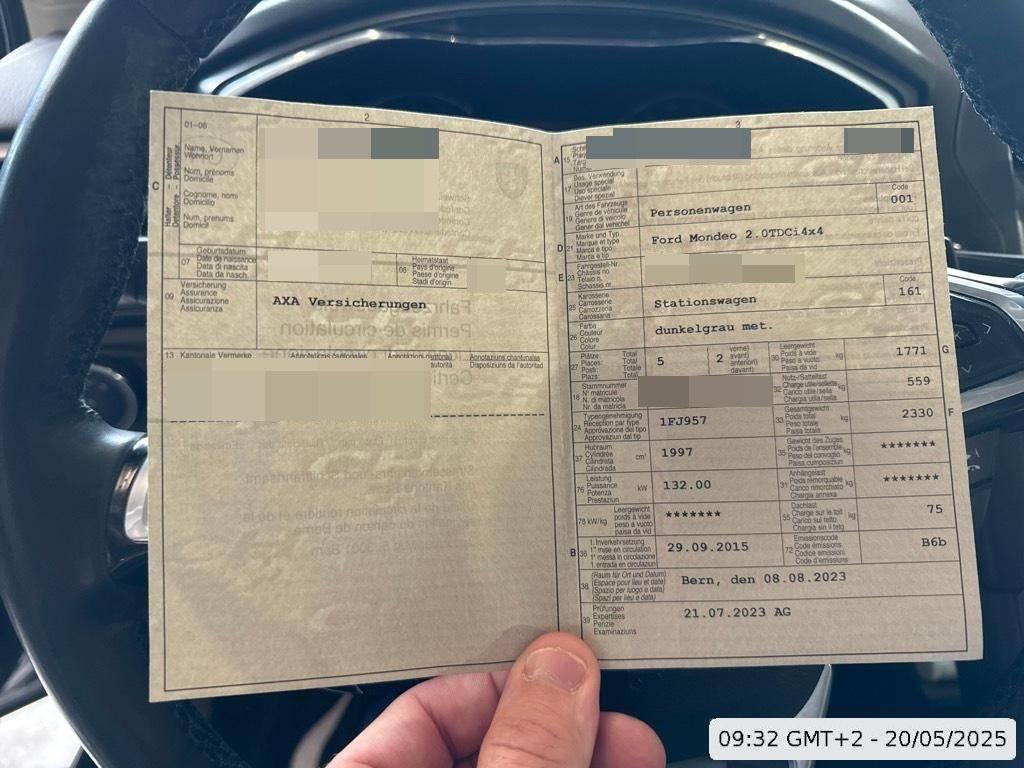 2
01-06
Name, Vornamen
Wohnort
Nom, prénoms
Domicile
Cognome, nomi
Domicilio
Num, prenums
Domicil
C
Halter
Détenteur
Detentore
Possessur
07
Geburtsdatum
Date de naissance
Data di nascita
Data da nasch.
08
Heimatstaat
Pays d'origine
Paese d'origine
Stadi d'origin
09
Versicherung
Assurance
Assicurazione
Assicuranza
AXA Versicherungen
13 Kantonale Vermerke
Annotations cantonales
Annotazioni cantonali
Annotaziuns chantunalas
Disposiziuns da l'autoritad
3
A 15
17
Bes. Verwendung
Usage spécial
Uso speciale
Diever spezial
19
Art des Fahrzeugs
Genre de véhicule
Genere di veicolo
Gener dal vehichel
Personenwagen
Code
001
D 21
Marke und Typ
Marque et type
Marca e tipo
Marca e tip
Ford Mondeo 2.0TDCi4x4
E 23
Fahrgestell-Nr.
Châssis no
Telaio n.
Schassis nr.
25
Karosserie
Carrosserie
Carrozzeria
Carossaria
Stationswagen
Code
161
26
Farbe
Couleur
Colore
Colur
dunkelgrau met.
27
Plätze: Total
Places: Total
Posti: Totale
Plazs: Total
5
2
vorne)
avant)
anteriori)
davant)
30
Leergewicht
Poids à vide
Peso a vuoto
Paisa da vid
kg
1771
G
18
Stammnummer
N° matricule
N. di matricola
Nr. da matricla
32
Nutz-/Sattellast
Charge utile/sellette
Carico utile/sella
Chargia utila/sella
kg
559
24
Typengenehmigung
Réception par type
Approvazione del tipo
Approvaziun dal tip
1FJ957
33
Gesamtgewicht
Poids total
Peso totale
Paisa totala
kg
2330
F
37
Hubraum
Cylindrée
Cilindrata
Cilindrada
cm³
1997
35
Gewicht des Zuges
Poids de l'ensemble
Peso del convoglio
Paisa cumposiziun
kg
*******
76
Leistung
Puissance
Potenza
Prestaziun
kW
132.00
31
Anhängelast
Poids remorquable
Carico rimorchiato
Chargia annexa
kg
*******
78 kW/kg
Leergewicht
poids à vide
peso a vuoto
paisa da vid
*******
55
Dachlast
Charge sur le toit
Carico sul tetto
Chargia sin il tetg
kg
75
B 36
1. Inverkehrsetzung
1re mise en circulation
1a messa in circolazione
1. entrada en circulaziun
29.09.2015
72
Emissionscode
Code émissions
Codice emissioni
Code d'emissiuns
B6b
38
(Raum für Ort und Datum)
(Espace pour lieu et date)
(Spazio per luogo e data)
(Spazi per lieu e data)
Bern, den 08.08.2023
39
Prüfungen
Expertises
Perizie
Examinaziuns
21.07.2023 AG
09:32 GMT+2 - 20/05/2025